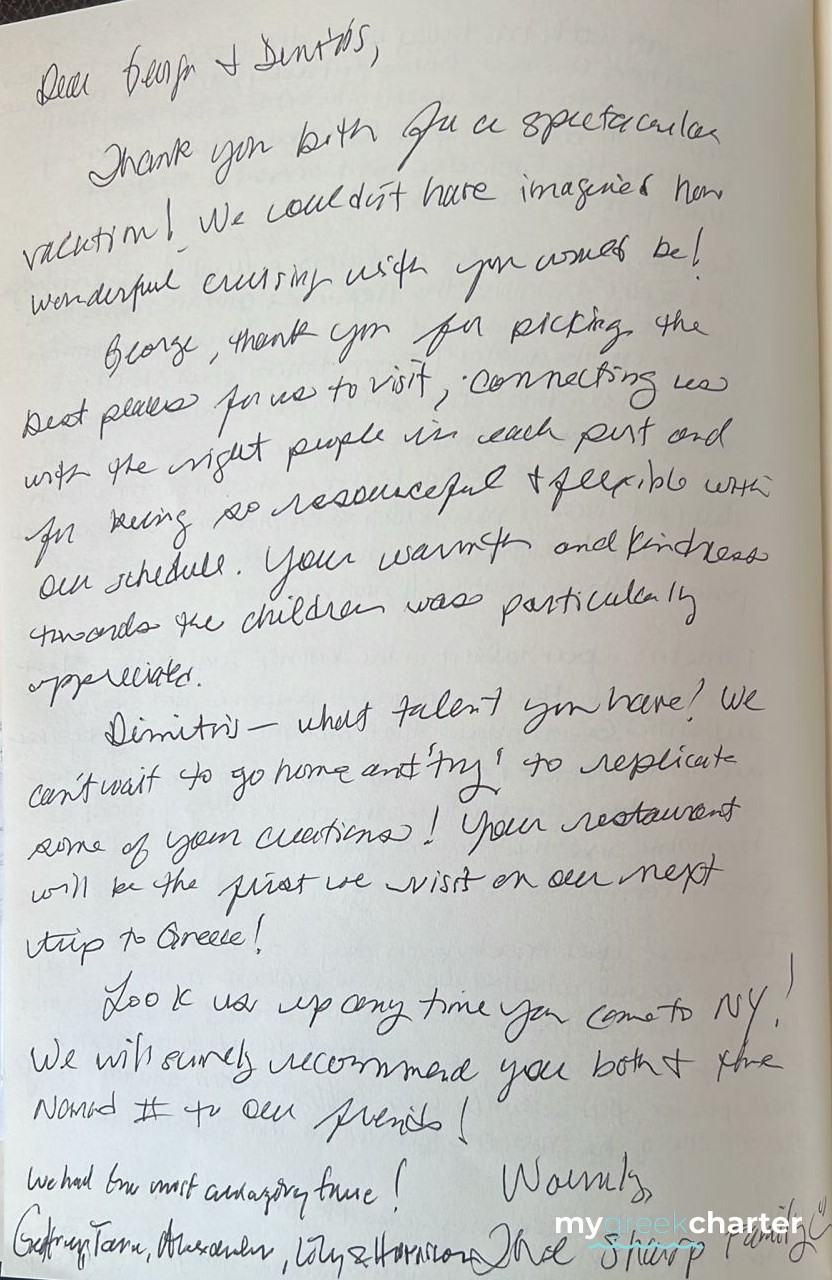 Dear George & Dimitris,
Thank you both for a spectacular
vacation! We couldn't have imagined how
wonderful cruising with you would be!
George, thank you for picking the
best places for us to visit, connecting us
with the right people in each port and
for being so resourceful & flexible with
our schedule. Your warmth and kindness
towards the children was particularly
appreciated.
Dimitris - what talent you have! We
can't wait to go home and 'try' to replicate
some of your creations! Your restaurant
will be the first we visit on our next
trip to Greece!
Look us up any time you come to NY!
We will surely recommend you both & the
Nomad II to our friends!
We had the most amazing time! Warmly,
Alexander, Lily & Harrison The Sharp Family
mygreekcharter